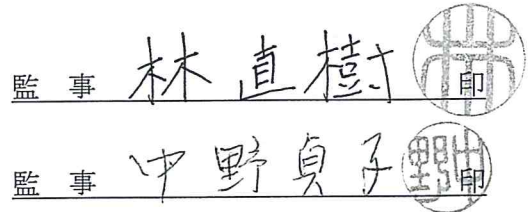 監 事 林 直樹 印
監 事 中野 貞子 印